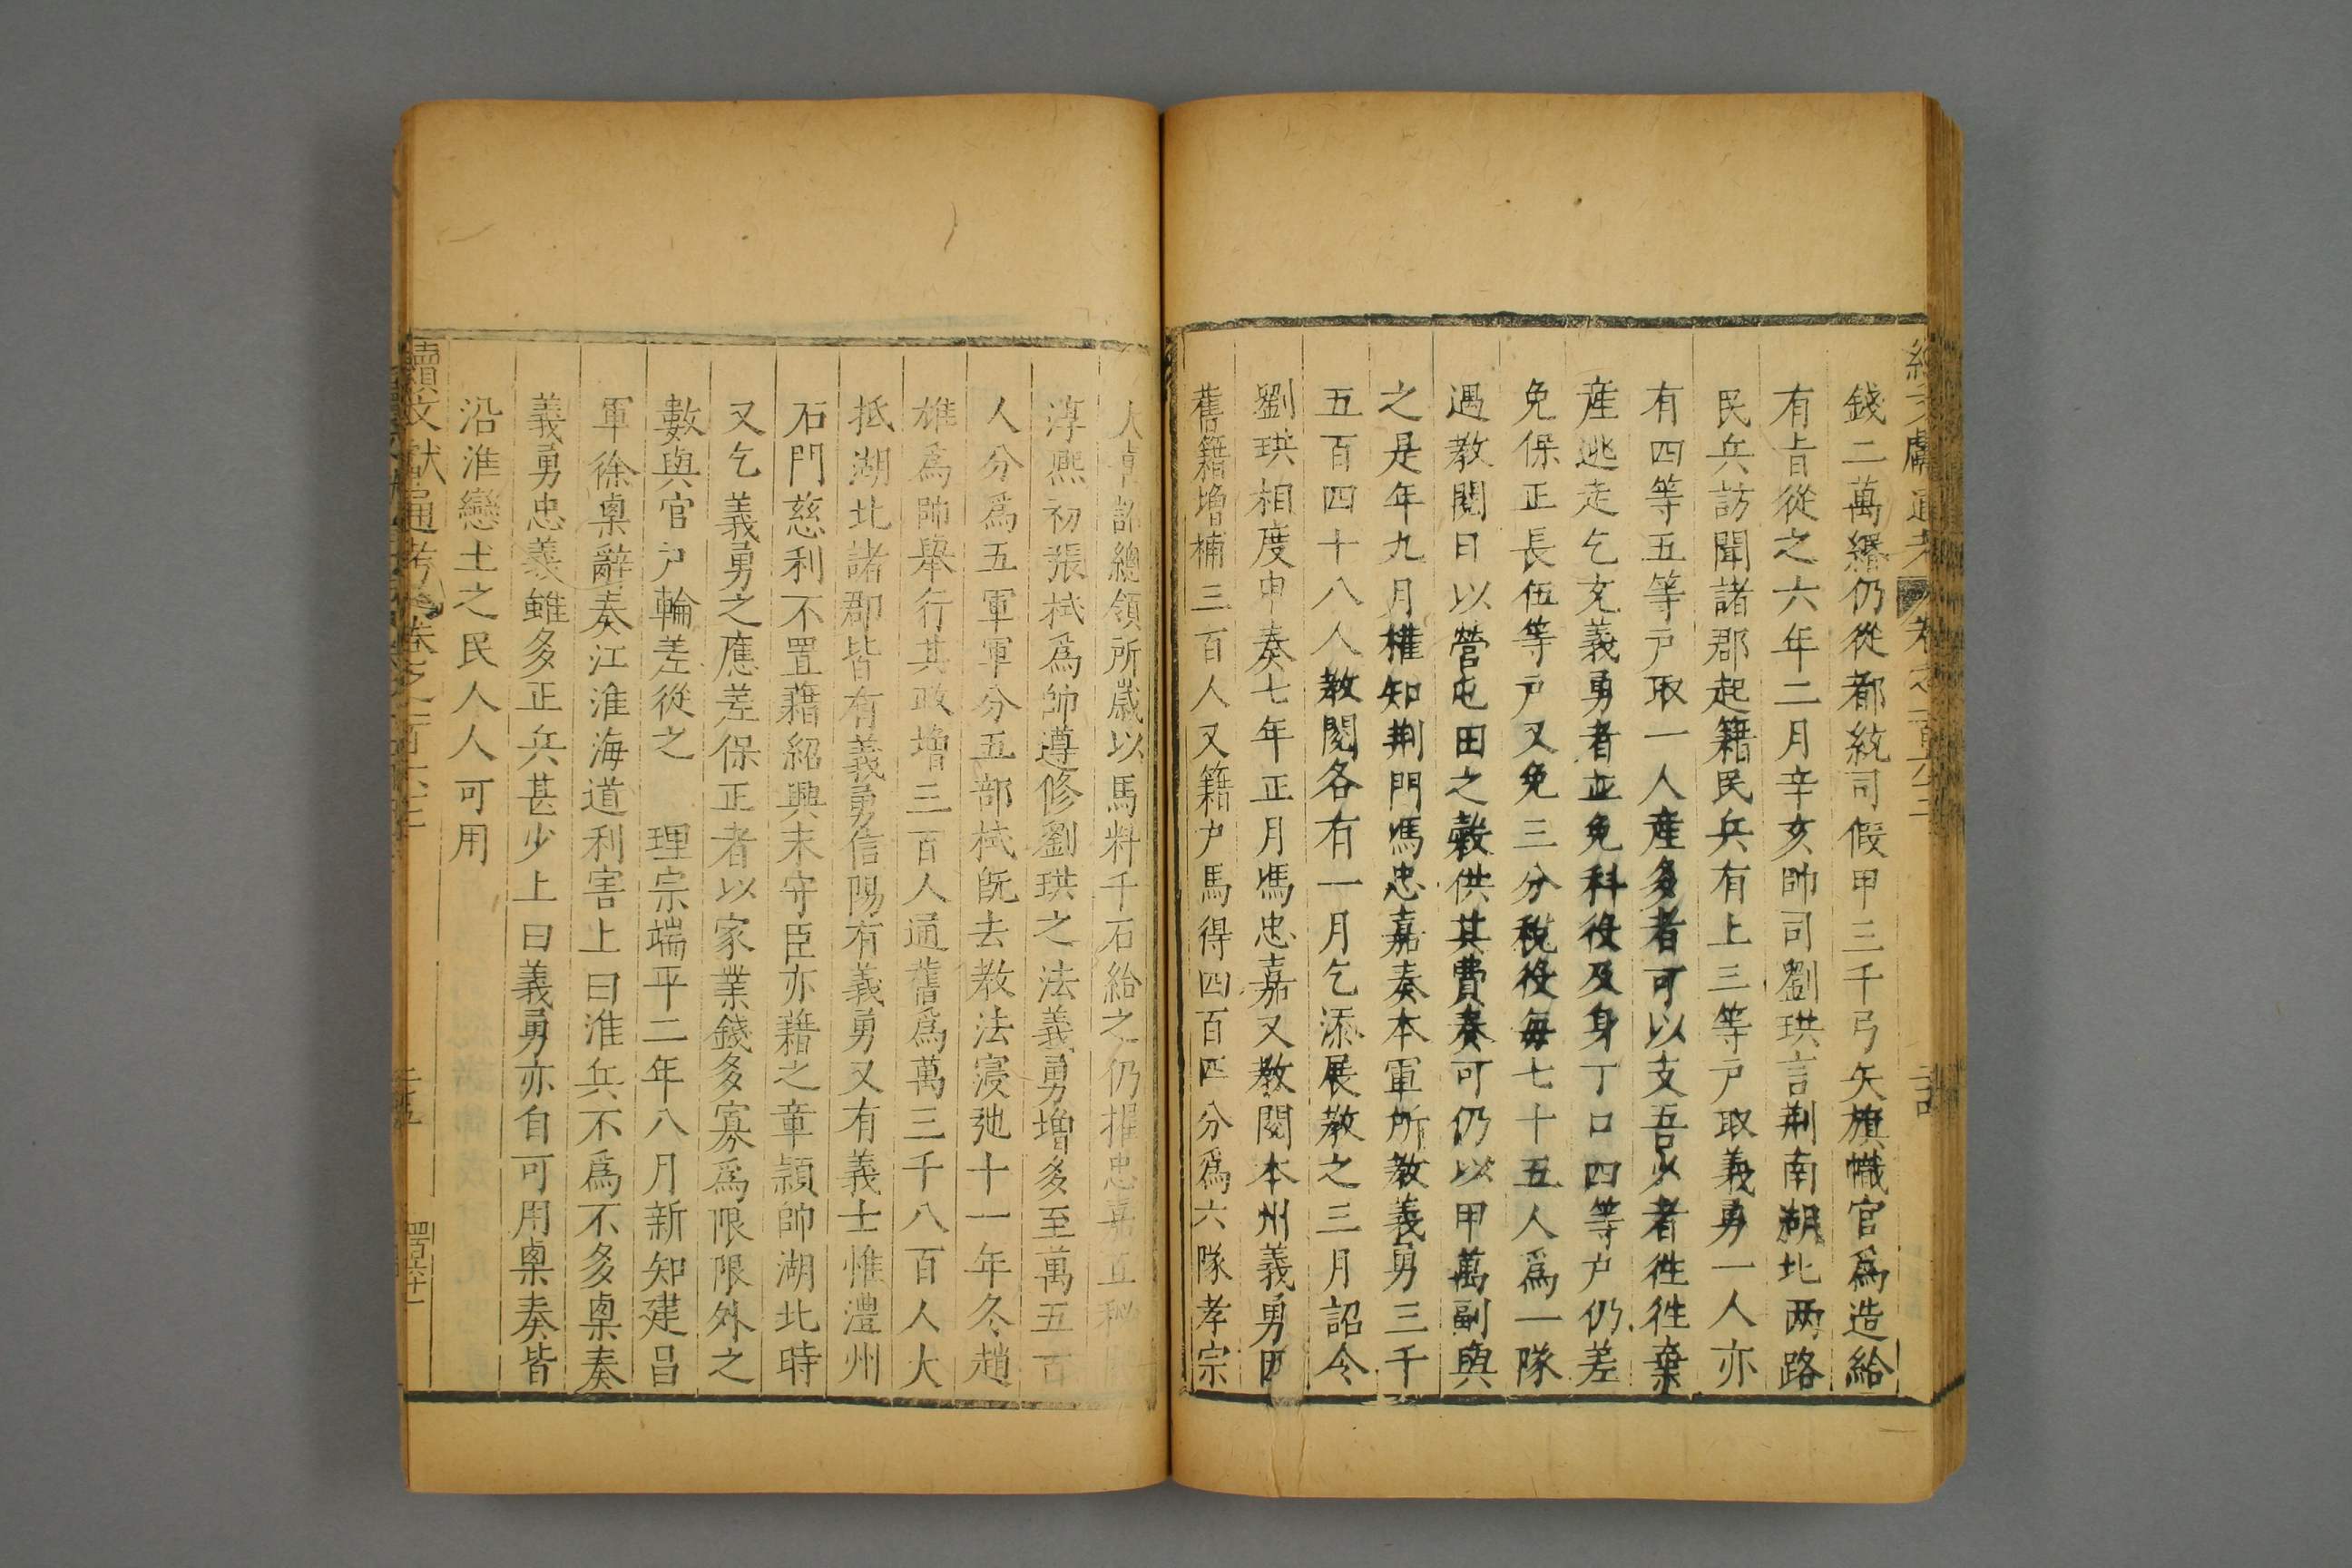 錢二萬緡仍從都統司假甲三千弓矢旗幟官爲造給
有旨從之六年二月辛亥帥司劉珙言荆南湖北两路
民兵訪聞諸郡起籍民兵有上三等戸取義勇一人亦
有四等五等戸取一人産多者可以支吾少者徃徃棄
産逃走乞充義勇者並免科役及身丁口四等戸仍差
免保正長伍等戸又免三分税役每七十五人爲一隊
遇教閲日以營屯田之穀供其費奏可仍以甲萬副與
之是年九月權知荆門馮忠嘉奏本軍所教義勇三千
五百四十八人教閱各有一月乞添展教之三月詔令
劉珙相度申奏七年正月馮忠嘉又教閱本州義勇因
舊籍增補三百人又籍戸馬得四百匹分爲六隊孝宗
詔總領所歲以馬料千石給之仍擢忠嘉直秘
淳熙初張栻爲帥遵修劉珙之法義勇增多至萬五百
人分爲五軍軍分五部栻旣去教法寖弛十一年冬趙
雄爲帥舉行其政增三百人通舊爲萬三千八百人大
抵湖北諸郡皆有義勇信陽有義勇又有義士惟澧州
石門慈利不置藉紹興末守臣亦藉之章穎帥湖北時
又乞義勇之應差保正者以家業錢多寡爲限限外之
數與官戸輪差從之　理宗端平二年八月新知建昌
軍徐㮚辭奏江淮海道利害上曰淮兵不爲不多㮚奏
義勇忠義雖多正兵甚少上曰義勇亦自可用㮚奏皆
沿淮戀土之民人人可用
續文獻通考卷之一百六十三